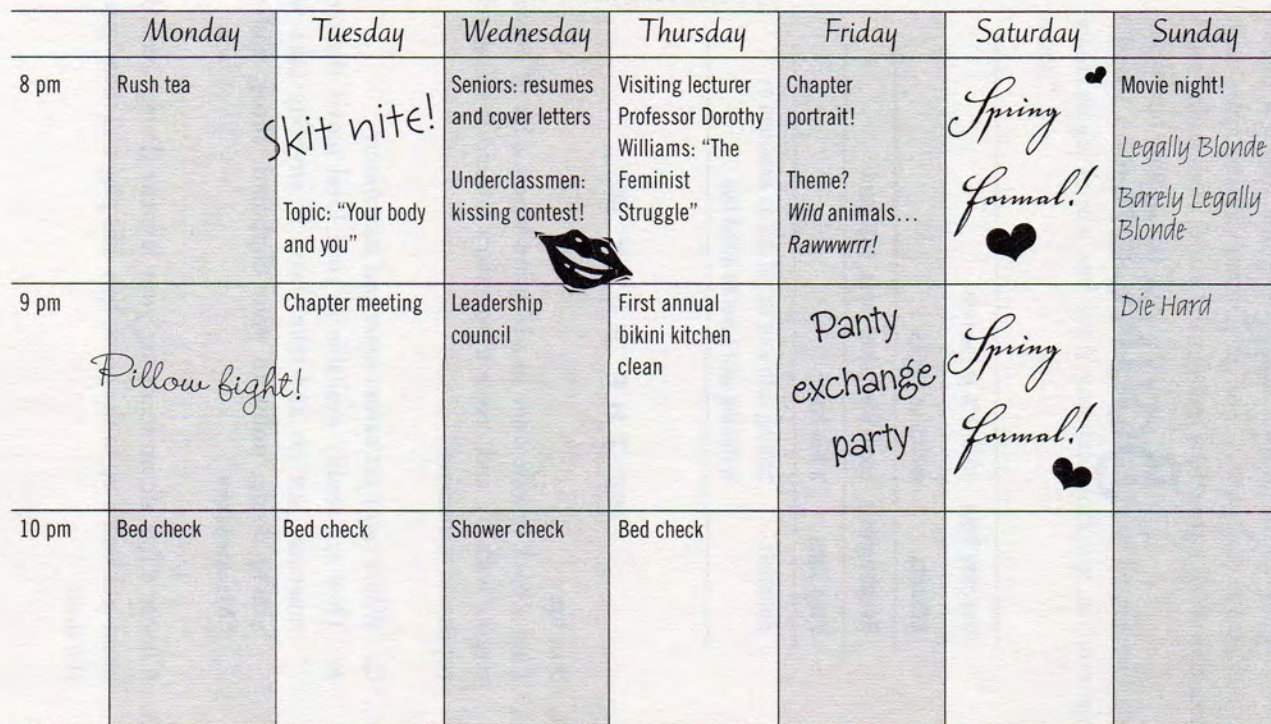 Monday
Tuesday
Wednesday
Thursday
Friday
Saturday
Sunday
8 pm
Rush tea
Skit nite!
Topic: "Your body
and you"
Seniors: resumes
and cover letters
Underclassmen:
kissing contest!
Visiting lecturer
Professor Dorothy
Williams: "The
Feminist
Struggle"
Chapter
portrait!
Theme?
Wild animals...
Rawwwrrr!
Spring
formal!
Movie night!
Legally Blonde
Barely Legally
Blonde
9 pm
Pillow fight!
Chapter meeting
Leadership
council
First annual
bikini kitchen
clean
Panty
exchange
party
Spring
formal!
Die Hard
10 pm
Bed check
Bed check
Shower check
Bed check